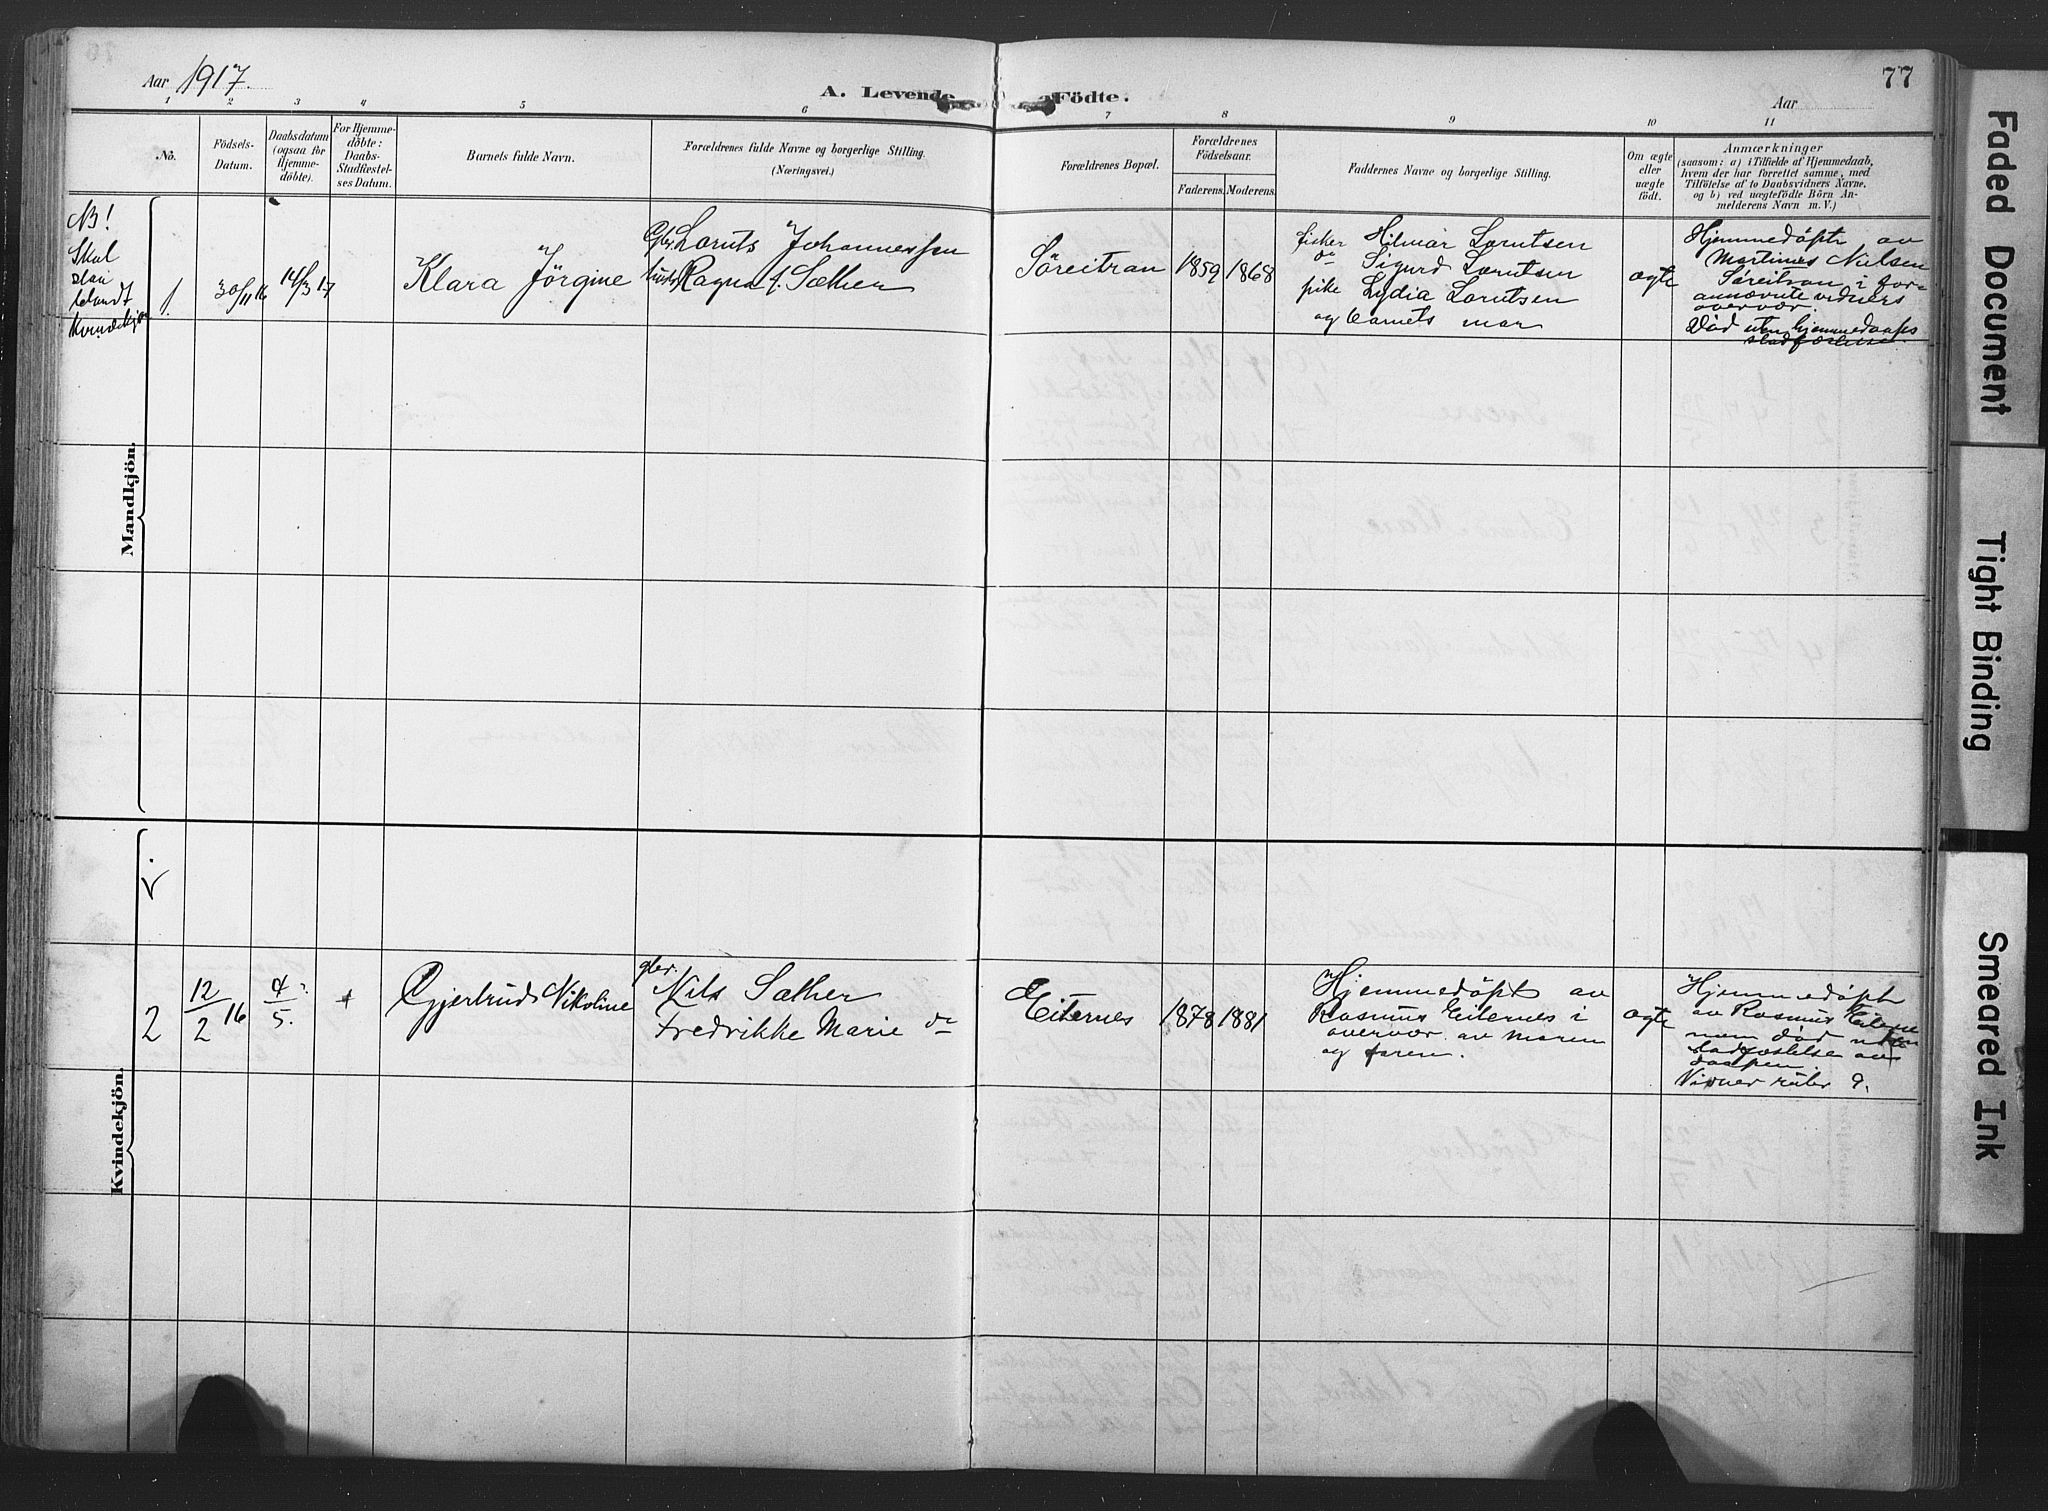 Aar 1917.
A. Levende
Födte.
Aar
77
1 2 3 4 5 6 7 8 9 10 11
No.
Födsels-
Datum.
Daabsdatum
(ogsaa for
Hjemme-
döbte).
For Hjemme-
döbte:
Daabs-
Stadfæstel-
ses Datum.
Barnets fulde Navn.
Forældrenes fulde Navne og borgerlige Stilling.
(Næringsvei.)
Forældrenes Bopæl.
Forældrenes
Födselsaar.
Faderens. Moderens.
Faddernes Navne og borgerlige Stilling.
Om ægte
eller
uægte
födt.
Anmærkninger
(saasom: a) i Tilfælde af Hjemmedaab,
hvem der har forrettet samme, med
Tilföielse af to Daabsvidners Navne,
og b) ved uægtefödte Börn An-
melderens Navn m. V.)
NB!
Skal
staa
blandt
Kvindekjøn
Mandkjön.
1.
30/11 16
14/3 17
Klara Jörgine
Gbr. Loruts Johannessen
hustru Ragna f. Sæther
Søreitran
1859
1868
fisker Hilmar Lorutsen
do Sigurd Lorutsen
pike Lydia Lorutsen
og barnets mor
ægte
Hjemmedøpt av
Martinus Nielsen
Søreitran i for-
annævnte vidners
overvær.
Død uten hjemmedaaps
stadfæstelse.
Kvindekjön.
2
12/2 16
4/5.
+
Gjertrud Nikoline
gbr.
Nils Sæther
Fredrikke Marie do
Eiternes
1878
1881
Hjemmedøpt av
Rasmus Eiternes i
overvær av moren
og faren.
ægte
Hjemmedøpt
av Rasmus Eiternes
men død uten
stadfæstelse av
daapen.
Vidner rubr 9.
Faded Document
Tight Binding
Smeared Ink